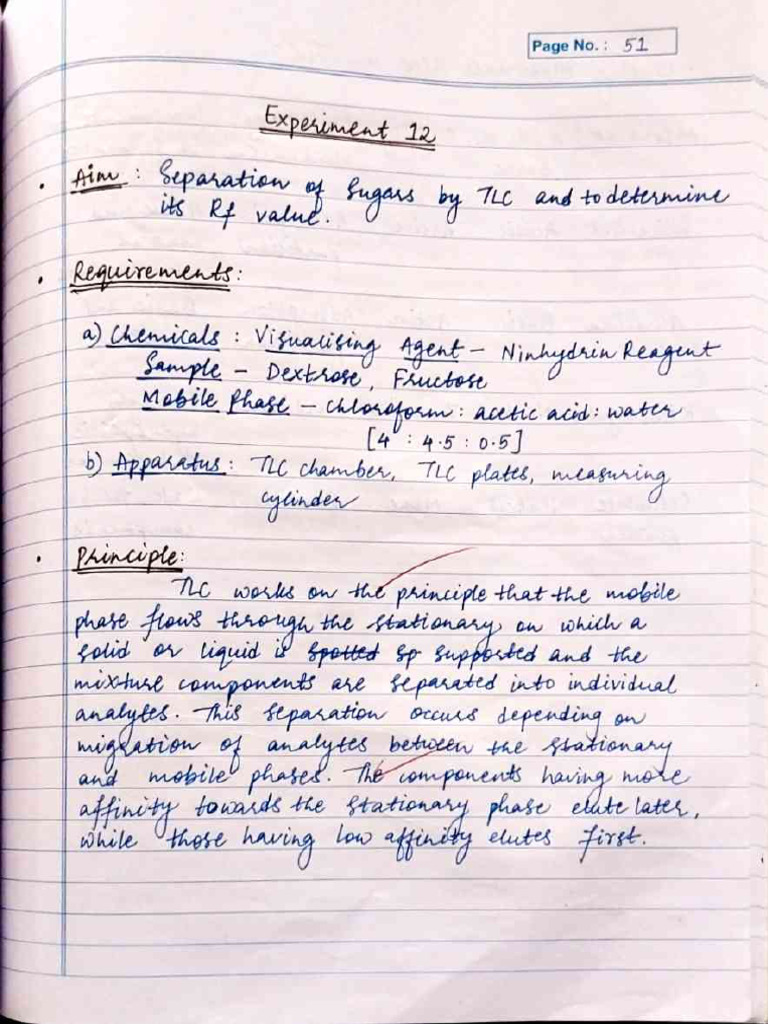 Page No. : 51
Experiment 12
• Aim : Separation of Sugars by TLC and to determine
its Rf value.
• Requirements:
a) Chemicals : Visualising Agent - Ninhydrin Reagent
Sample - Dextrose, Fructose
Mobile Phase - Chloroform : acetic acid : water
[4 : 4.5 : 0.5]
b) Apparatus : TLC chamber, TLC plates, measuring
cylinder
• Principle:
TLC works on the principle that the mobile
phase flows through the stationary on which a
solid or liquid is spotted sp supported and the
mixture components are separated into individual
analytes. This separation occurs depending on
migration of analytes between the stationary
and mobile phases. The components having more
affinity towards the stationary phase elute later,
while those having low affinity elutes first.